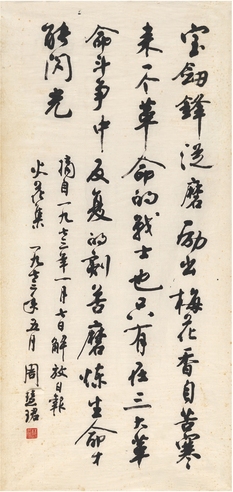 宝剑锋从磨励出梅花香自苦寒
来一个革命的战士也只有在三大革
命斗争中反复的刻苦磨炼生命才
能闪光
摘自一九七三年一月七日解放日报
火花集 一九七三年五月 周慧珺